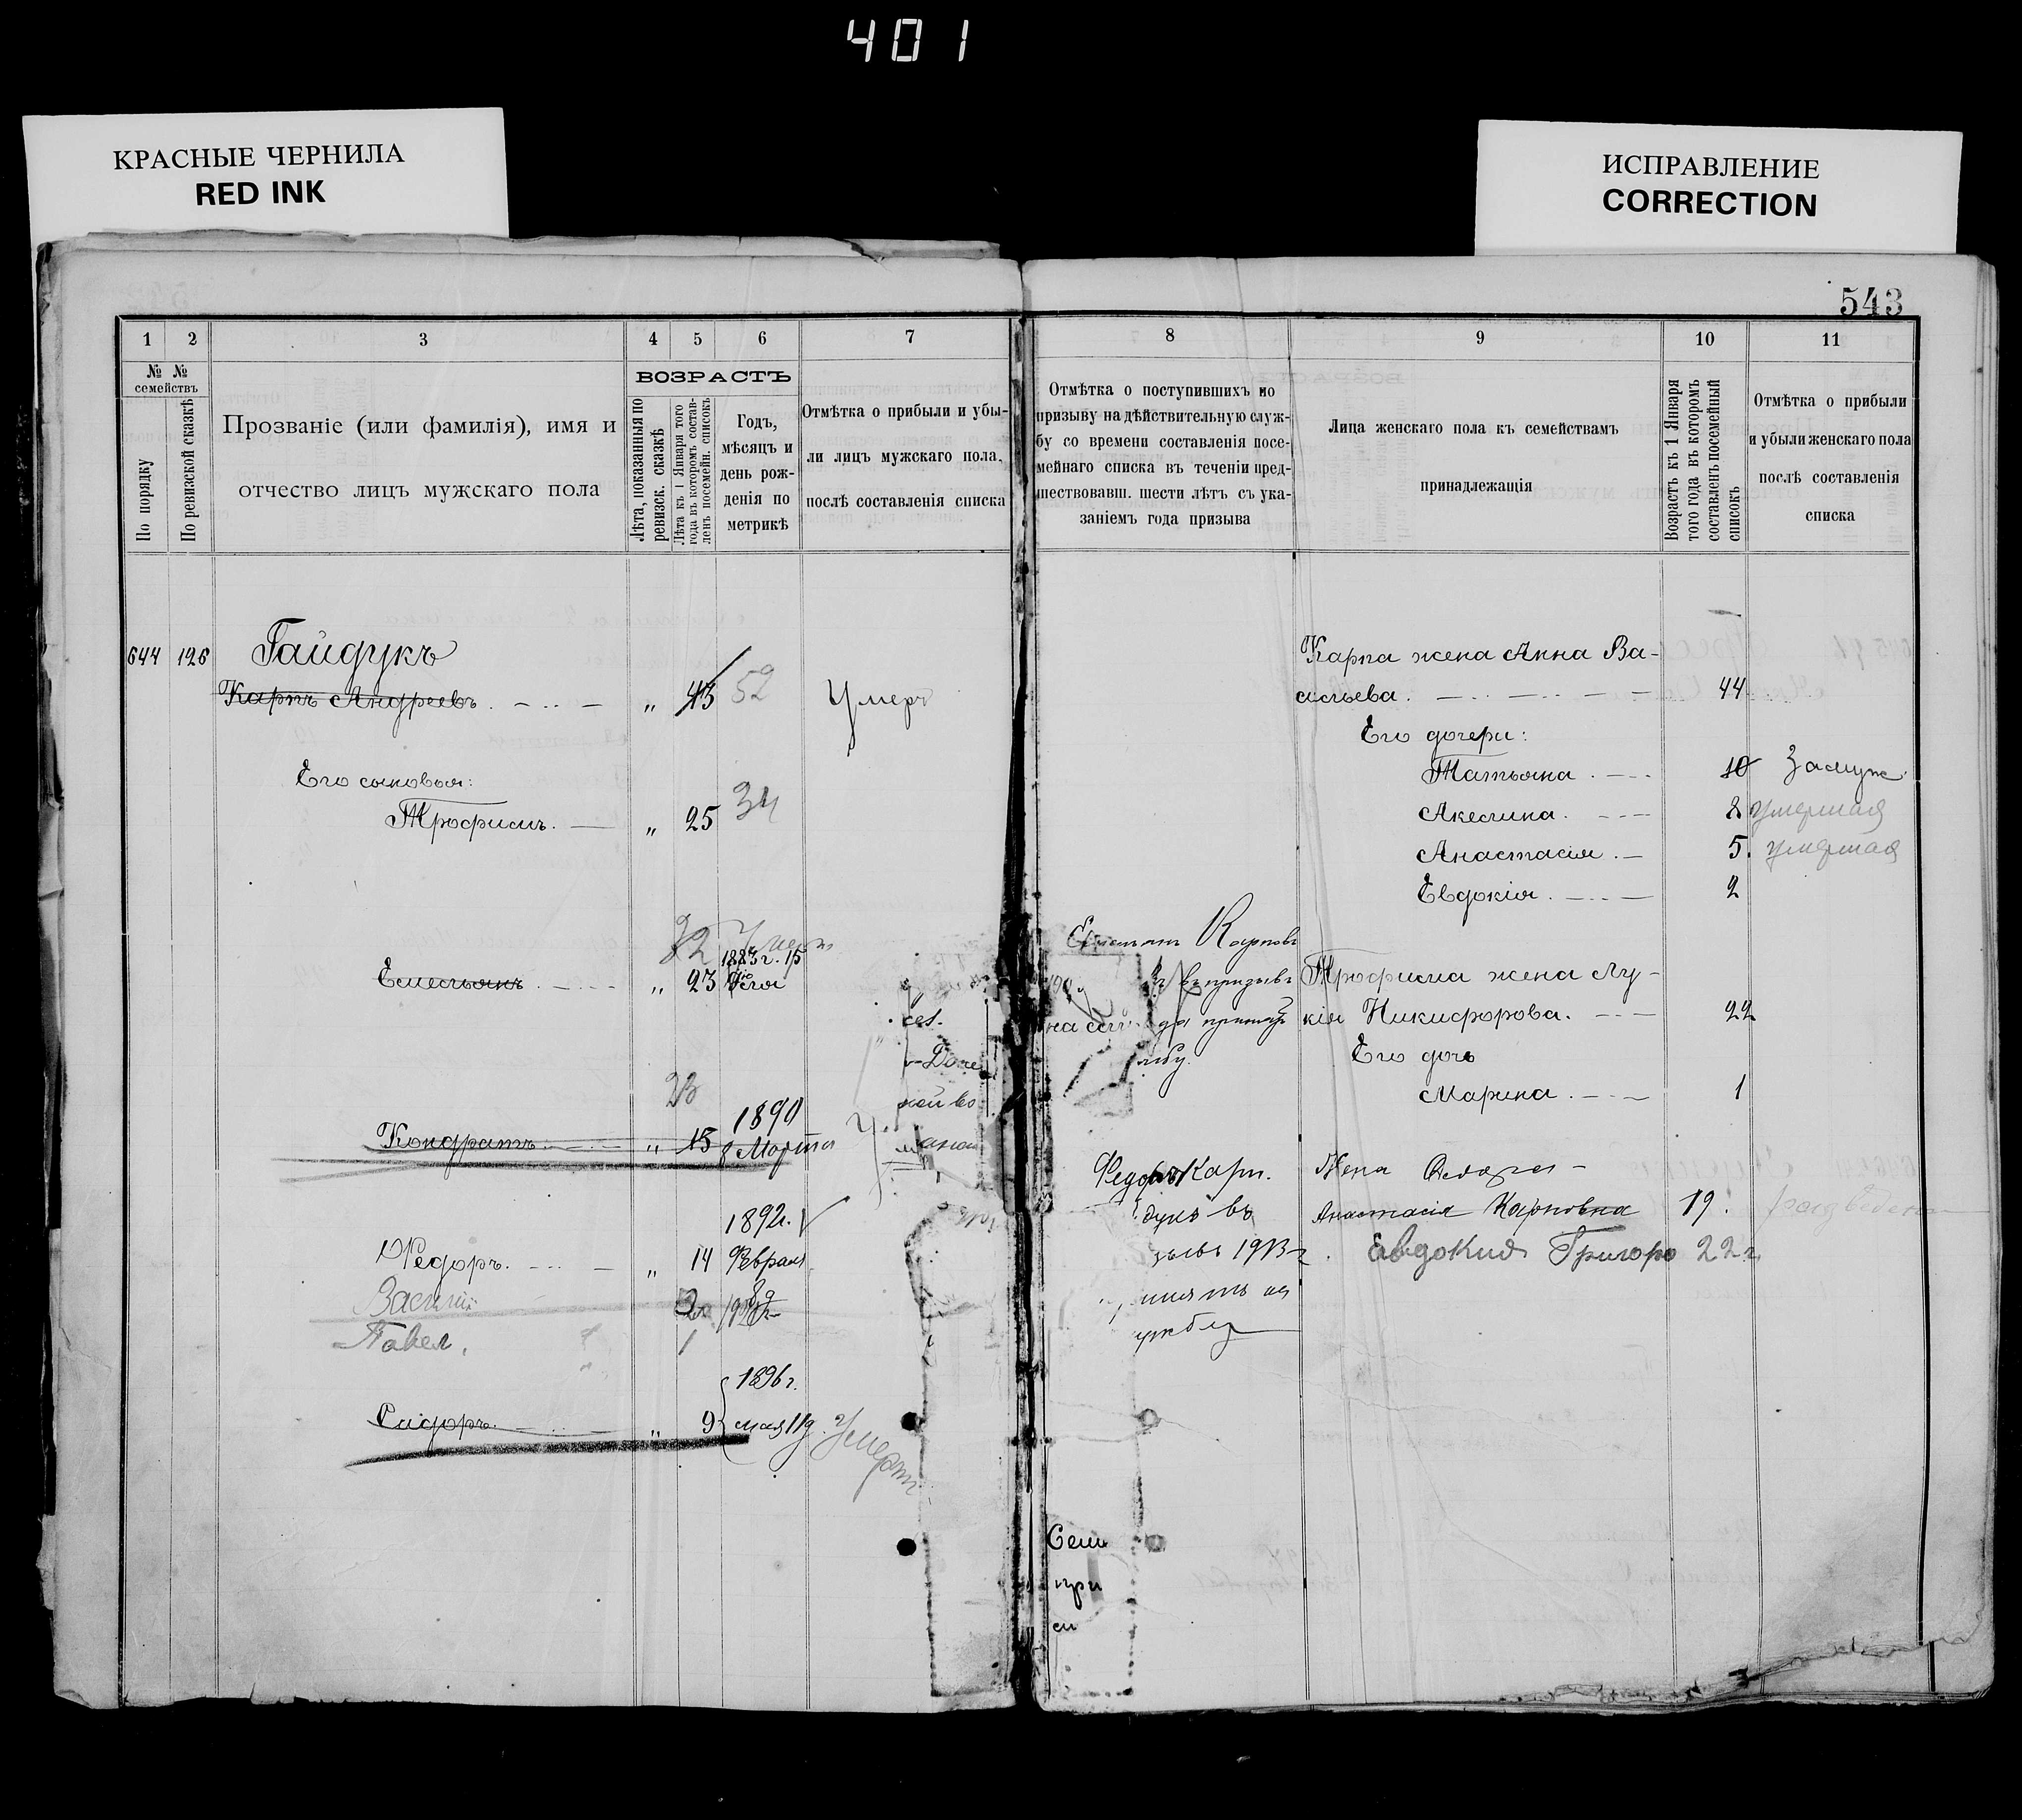 401
КРАСНЫЕ ЧЕРНИЛА
RED INK
ИСПРАВЛЕНИЕ
CORRECTION
543
1 2 3 4 5 6 7
№ № семействъ
По порядку
По ревизской сказкѣ
Прозваніе (или фамилія), имя и
отчество лицъ мужскаго пола
ВОЗРАСТЪ
Лѣта, показанныя по
ревизск. сказкѣ
Лѣта къ 1 Января того
года въ которомъ состав-
ленъ посемейн. списокъ
Годъ,
мѣсяцъ и
день рож-
денія по
метрикѣ
Отмѣтка о прибыли и убы-
ли лицъ мужскаго пола,
послѣ составленія списка
644 126 Гайдукъ
Карпъ Андреевъ „ 43 52 Умеръ
Его сыновья:
Трофимъ. „ 25 34
32 Умеръ
1883 г. 15
Емельянъ „ 23
23
1890
Кондратъ „ 15 8 Марта
1892г.
Федоръ. „ 14 Февраля
Василій
Павел, 1
1896 г.
Сидоръ. „ 9 мая 11 д. Умеръ
8 9 10 11
Отмѣтка о поступившихъ по
призыву на дѣйствительную служ-
бу со времени составленія посе-
мейнаго списка въ теченіи пред-
шествовавш. шести лѣтъ съ ука-
заніемъ года призыва
Лица женскаго пола къ семействамъ
принадлежащія
Возрастъ къ 1 Января
того года въ которомъ
составленъ посемейный
списокъ
Отмѣтка о прибыли
и убыли женскаго пола
послѣ составленія
списка
Карпа жена Анна Ва-
сильева. 44
Его дочери:
Татьяна. 10 Замуж.
Акелина. 8 умершая
Анастасія. 5. умершая
Евдокія. 2
Карповъ
въ призывъ
Трофима жена Лу-
кія Никифорова. 22
Его дочь
Марина. 1
Федоръ Карп.
въ
1913 г.
Жена Федора
Анастасія Карповна 19.
Евдокия Григоро 22 г.